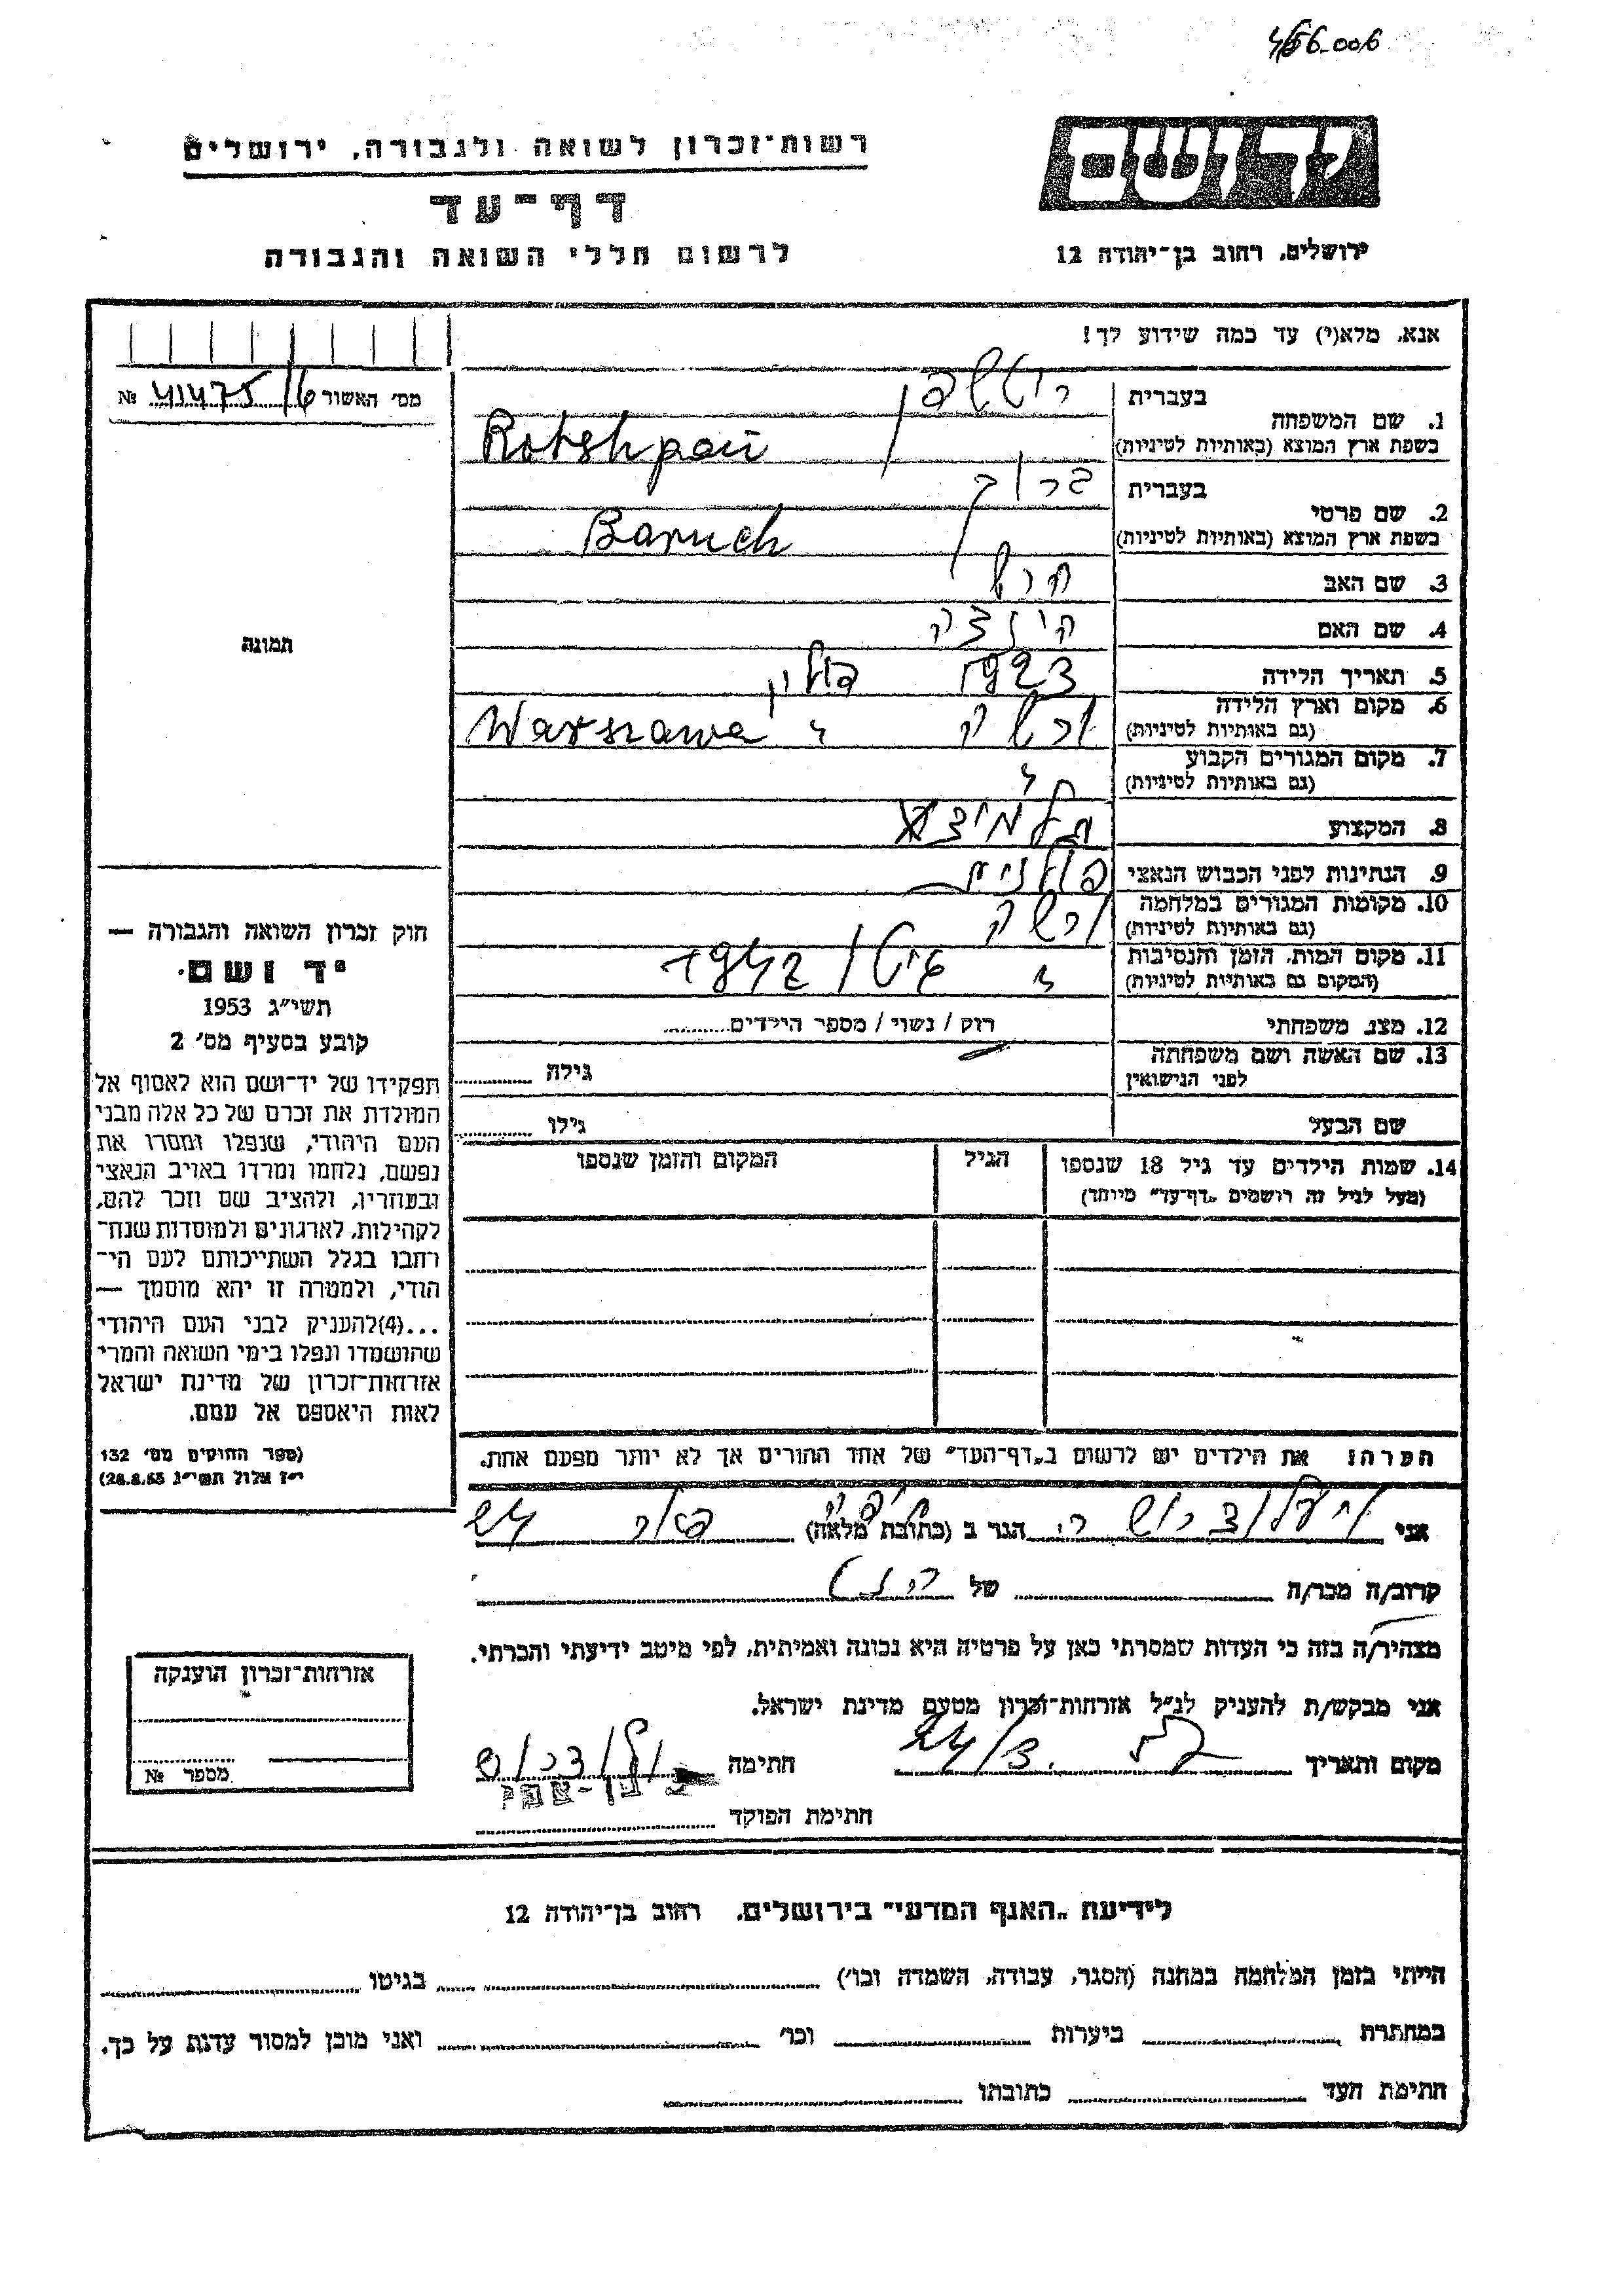 456.006
יד ושם
רשות-זכרון לשואה ולגבורה, ירושלים
דף-עד
לרשום חללי השואה והגבורה
ירושלים, רחוב בן-יהודה 12
אנא, מלא(י) עד כמה שידוע לך!
מס׳ האשור 41475/6 №
תמונה
1. שם המשפחה
בעברית
בשפת ארץ המוצא (באותיות לטיניות) Rotshpan
2. שם פרטי
בעברית ברוך
בשפת ארץ המוצא (באותיות לטיניות) Baruch
3. שם האב הרש
4. שם האם הינדה
5. תאריך הלידה 1923
6. מקום וארץ הלידה ורשה פולין
(גם באותיות לטיניות) Warszawa
7. מקום המגורים הקבוע
(גם באותיות לטיניות)
8. המקצוע תלמיד
9. הנתינות לפני הכבוש הנאצי פולנית
10. מקומות המגורים במלחמה ורשה
(גם באותיות לטיניות)
11. מקום המות, הזמן והנסיבות גיטו 1942
(המקום גם באותיות לטיניות)
12. מצב משפחתי רוק / נשוי / מספר הילדים
13. שם האשה ושם משפחתה
לפני הנישואין גילה
שם הבעל גילו
14. שמות הילדים עד גיל 18 שנספו
(מעל לגיל זה רושמים „דף-עד" מיוחד)
הגיל
המקום והזמן שנספו
הערה: את הילדים יש לרשום ב„דף-העד" של אחד ההורים אך לא יותר מפעם אחת.
חוק זכרון השואה והגבורה —
יד ושם
תשי״ג 1953
קובע בסעיף מס׳ 2
תפקידו של יד-ושם הוא לאסוף אל
המולדת את זכרם של כל אלה מבני
העם היהודי, שנפלו ומסרו את
נפשם, נלחמו ומרדו באויב הנאצי
ובעוזריו, ולהציב שם וזכר להם,
לקהילות, לארגונים ולמוסדות שנח־
רבו בגלל השתייכותם לעם הי־
הודי, ולמטרה זו יהא מוסמך —
...(4)להעניק לבני העם היהודי
שהושמדו ונפלו בימי השואה והמרי
אזרחות-זכרון של מדינת ישראל
לאות היאספם אל עמם.
(ספר החוקים מס׳ 132
י״ז אלול תשי״ג 28.8.53)
אני הגר ב (כתובת מלאה) 24
קרוב/ה מכר/ה של
מצהיר/ה בזה כי העדות שמסרתי כאן על פרטיה היא נכונה ואמיתית, לפי מיטב ידיעתי והכרתי.
אני מבקש/ת להעניק לנ״ל אזרחות-זכרון מטעם מדינת ישראל.
מקום ותאריך 24/3. חתימה
חתימת הפוקד
אזרחות-זכרון הוענקה
מספר №
לידיעת „האגף המדעי" בירושלים, רחוב בן-יהודה 12
הייתי בזמן המלחמה במחנה (הסגר, עבודה, השמדה וכו׳) בגיטו
במחתרת ביערות וכו׳ ואני מוכן למסור עדות על כך.
חתימת העד כתובתו